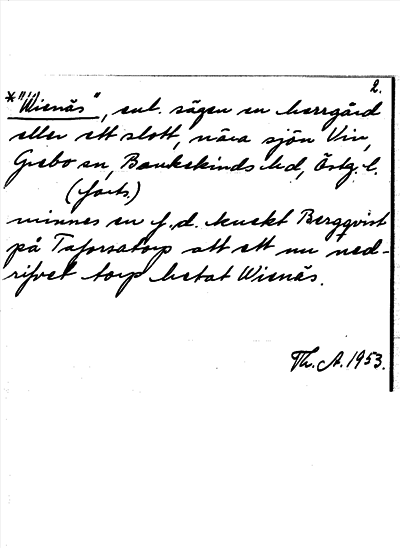 2.
*"Wisnäs", enl. sägen en herrgård
eller ett slott, nära sjön Vin,
Grebo sn, Bankekinds hd, Östg. l.
(forts.)
minnes en f.d. knekt Bergqvist
på Taforsatorp att ett nu ned-
rifvet torp hetat Wisnäs.
Th. A. 1953.